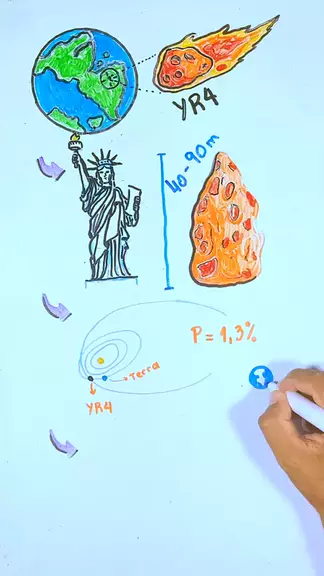 YR4
40-90m
P = 1,3%
Terra
YR4